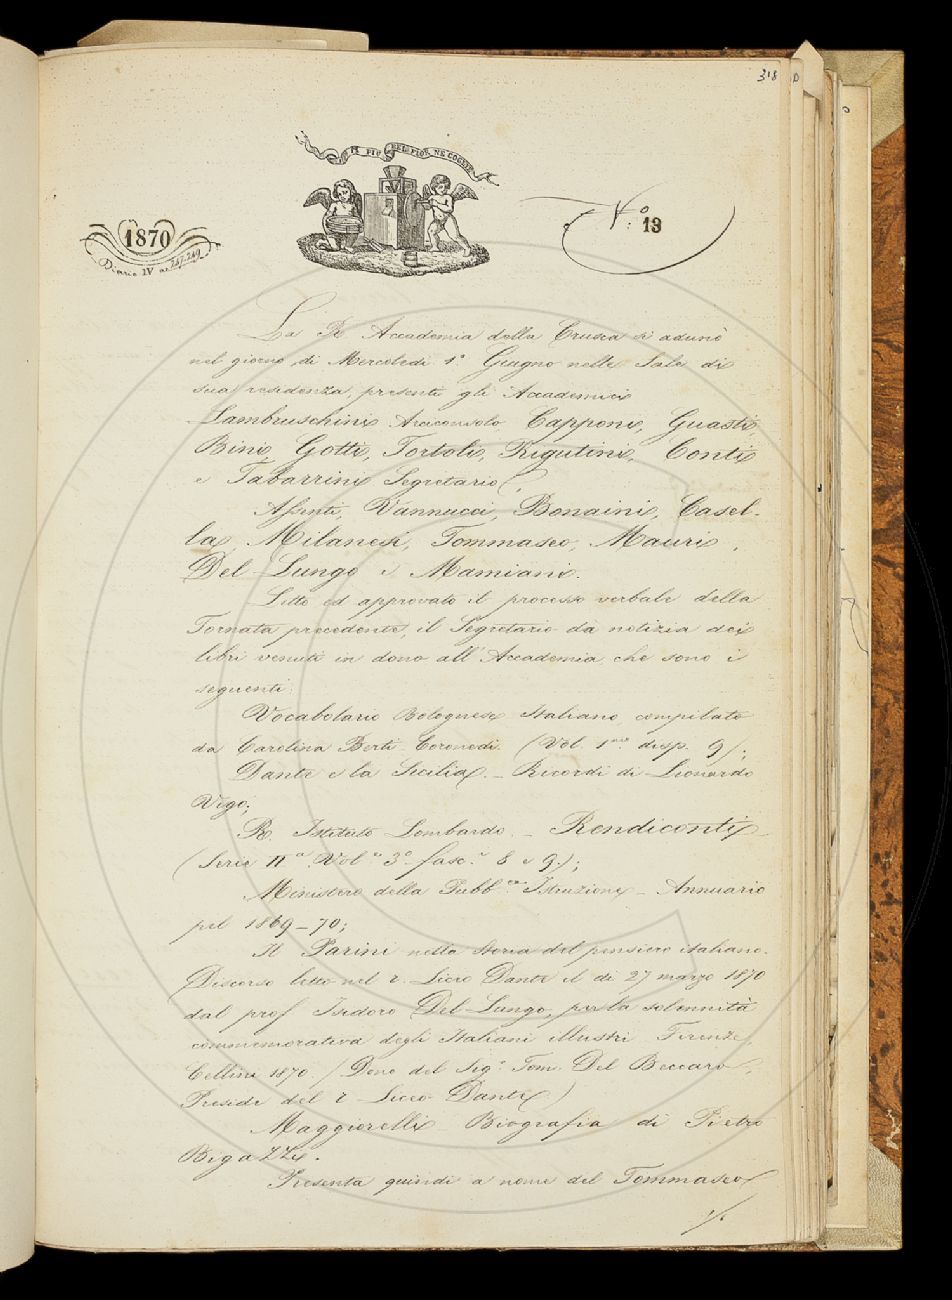 318
IL PIU BEL FIOR NE COGLIE
1870
Diario IV ac. 257.259
N.° 13
La R. Accademia della Crusca si adunò
nel giorno di Mercoledì 1° Giugno nelle Sale di
sua residenza, presenti gli Accademici
Lambruschini Arciconsolo Capponi, Guasti,
Bini, Gotti, Tortoli, Rigutini, Conti
e Tabarrini Segretario.
Assenti, Vannucci, Bonaini, Casel-
la, Milanesi, Tommaseo, Mauri,
Del-Lungo e Mamiani.
Letto ed approvato il processo verbale della
Tornata precedente, il Segretario dà notizia dei
libri venuti in dono all'Accademia che sono i
seguenti:
Vocabolario Bolognese Italiano, compilato
da Carolina Berti-Coronedi. (Vol. 1.mo disp. 9);
Dante e la Sicilia. - Ricordi di Lionardo
Vigo;
R. Istituto Lombardo. - Rendiconti -
(Serie IIa. Vol.e 3.° fasc.i 8 e 9.);
Ministero della Pubb.ca Istruzione - Annuario
pel 1869-70;
Il Parini nella storia del pensiero italiano.
Discorso letto nel r. Liceo Dante il dì 27 marzo 1870
dal prof Isidoro Del-Lungo, per la solennità
commemorativa degli Italiani illustri. Firenze,
Cellini 1870 (Dono del Sig.r Tom. Del Beccaro,
Preside del r. Liceo Dante)
Maggiorelli Biografia di Pietro
Bigazzi.
Presenta quindi a nome del Tommaseo
./.